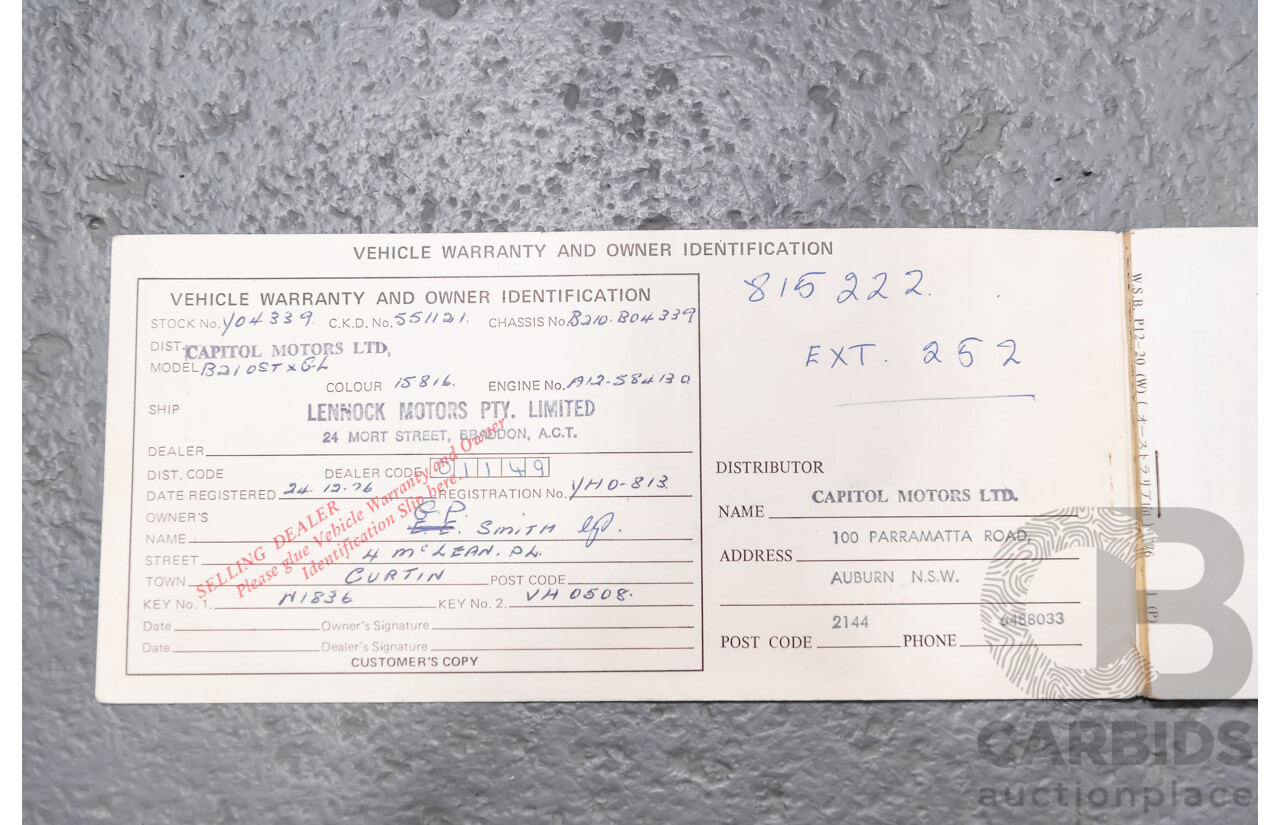 VEHICLE WARRANTY AND OWNER IDENTIFICATION
VEHICLE WARRANTY AND OWNER IDENTIFICATION
STOCK No. Y04339 C.K.D. No. 551121. CHASSIS No. B210.B04339
DIST. CAPITOL MOTORS LTD,
MODEL B210STXGL
COLOUR 15816. ENGINE No. A12-58413A
SHIP LENNOCK MOTORS PTY. LIMITED
24 MORT STREET, BRADDON, A.C.T.
DEALER
DIST. CODE DEALER CODE 01149
DATE REGISTERED 24.12.76 REGISTRATION No. YHO-813
OWNER'S G.P.
NAME E.E. SMITH
STREET 4 McLEAN. PL.
TOWN CURTIN POST CODE
KEY No. 1. N1836 KEY No. 2. VH0508.
Date Owner's Signature
Date Dealer's Signature
CUSTOMER'S COPY
SELLING DEALER
Please glue Vehicle Warranty and Owner
Identification Slip here.
815222.
EXT. 252
DISTRIBUTOR
NAME CAPITOL MOTORS LTD.
ADDRESS 100 PARRAMATTA ROAD,
AUBURN N.S.W.
POST CODE 2144 PHONE 6488033
WS.B. P12-20 (W) (オーストラリア
CB
CARBIDS
auctionplace